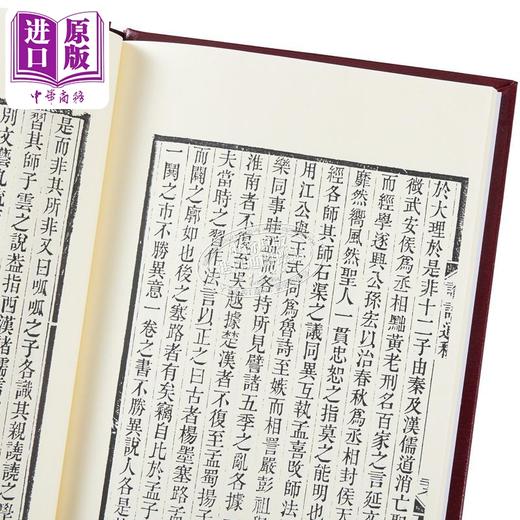 进口
原版
中華商務
於大理於是非十二子由秦及漢儒道消亡
徵武安侯為丞相黜黃老刑名百家之言延
而經學遂興公孫宏以治春秋為丞相封侯天
靡然嚮風然聖人一貫忠恕之指莫之能明
經各師其師石渠之議同異互執孟喜改師法
用江公與王式同為魯詩至嫉而相詈嚴彭祖
樂同事眭孟而各持所見譬諸五季之亂各據
淮南者不復至吳越據楚漢者不復至孟蜀揚子
夫當時之習作法言以正之曰古者楊墨塞路孟子
而闢之廓如也後之塞路者有矣竊自比於孟子
一閧之市不勝異意一卷之書不勝異說人各是
是而非其所非又曰呱呱之子各識其親譊譊之學
習其師子雲之說蓋指西漢諸儒